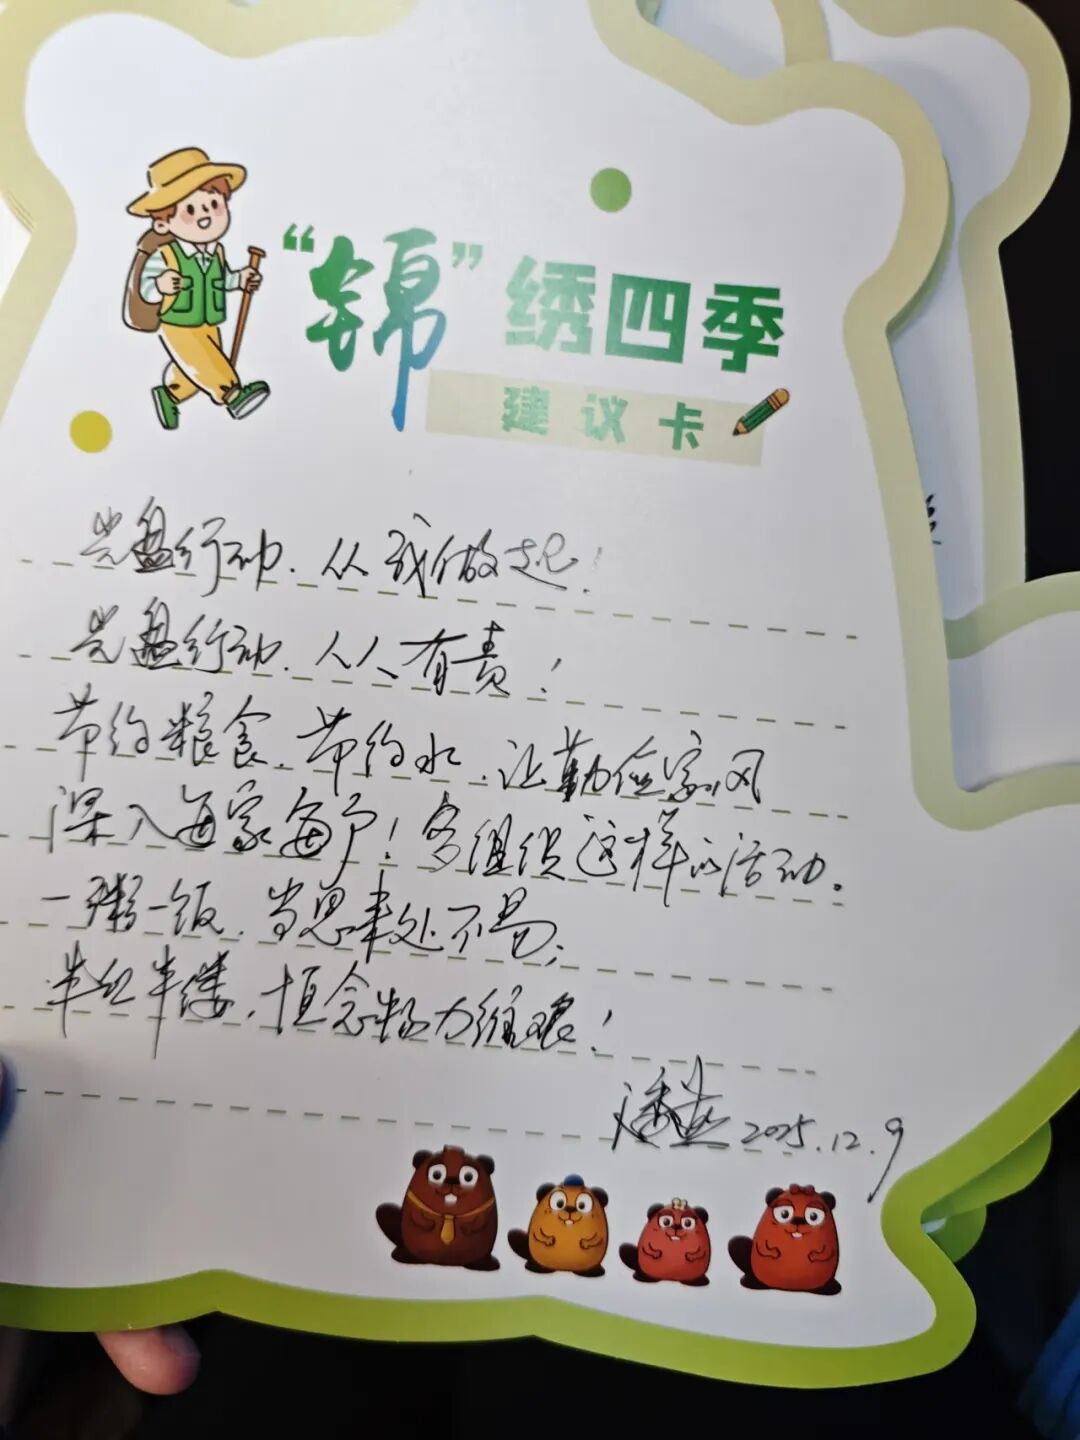 “锦”绣四季
建议卡
光盘行动，从我做起！
光盘行动，人人有责！
节约粮食，节约水，让勤俭家风
深入每家每户！多组织这样的活动。
一粥一饭，当思来处不易；
半丝半缕，恒念物力维艰！
2025.12.9